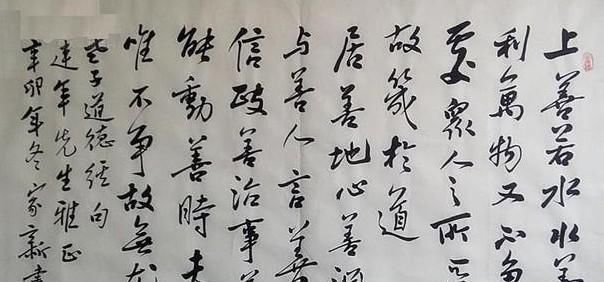 上善若水水善
利萬物又不争
処衆人之所惡
故幾於道
居善地心善渊
与善人言善
信政善治事善
能動善時夫
唯不争故無尤
老子道德經句
建年先生雅正
辛卯年冬家新書